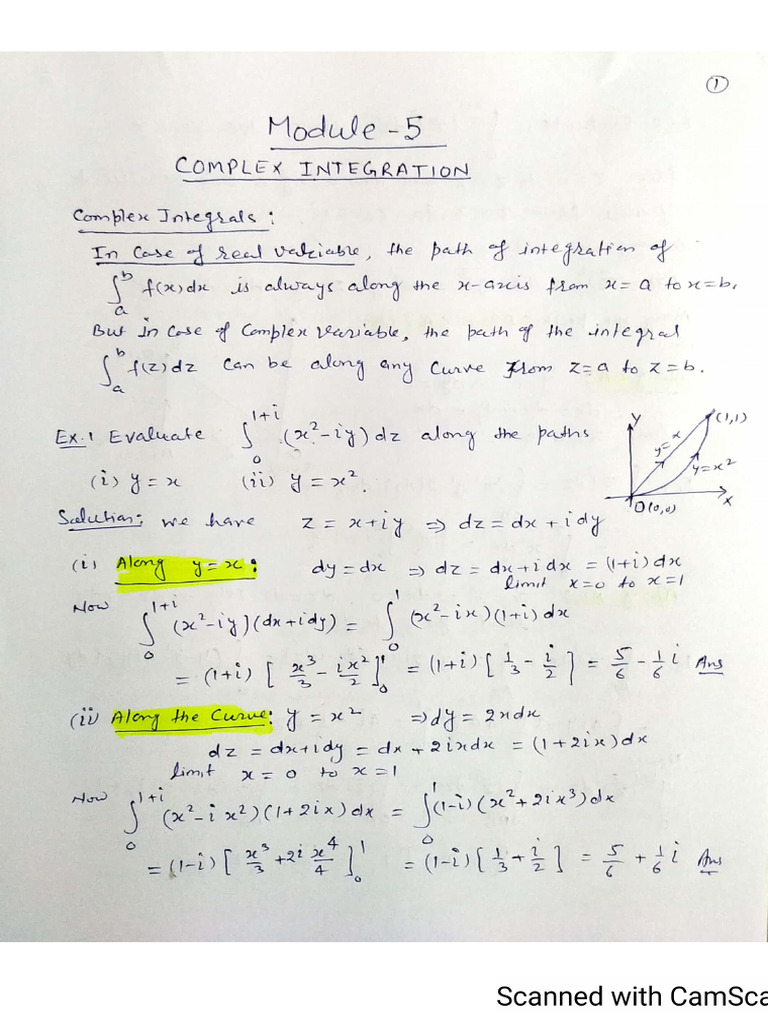 ①
Module-5
COMPLEX INTEGRATION
Complex Integrals:
In Case of real variable, the path of integration of
∫_a^b f(x)dx is always along the x-axis from x=a to x=b.
But in Case of Complex Variable, the path of the integral
∫_a^b f(z)dz can be along any curve from z=a to z=b.
Ex.1 Evaluate ∫_0^{1+i} (x²-iy)dz along the paths
(i) y=x (ii) y=x².
Y
(1,1)
y=x
y=x²
O(0,0)
X
Solution: we have z=x+iy ⇒ dz=dx+idy
(i) Along y=x: dy=dx ⇒ dz=dx+idx=(1+i)dx
limit x=0 to x=1
Now ∫_0^{1+i} (x²-iy)(dx+idy) = ∫_0^1 (x²-ix)(1+i)dx
= (1+i)[x³/3 - ix²/2]_0^1 = (1+i)[1/3 - i/2] = 5/6 - 1/6 i Ans
(ii) Along the Curve: y=x² ⇒dy=2xdx
dz=dx+idy=dx+2ixdx=(1+2ix)dx
limit x=0 to x=1
Now ∫_0^{1+i} (x²-ix²)(1+2ix)dx = ∫_0^1 (1-i)(x²+2ix³)dx
= (1-i)[x³/3 + 2i x⁴/4]_0^1 = (1-i)[1/3 + i/2] = 5/6 + 1/6 i Ans
Scanned with CamSca